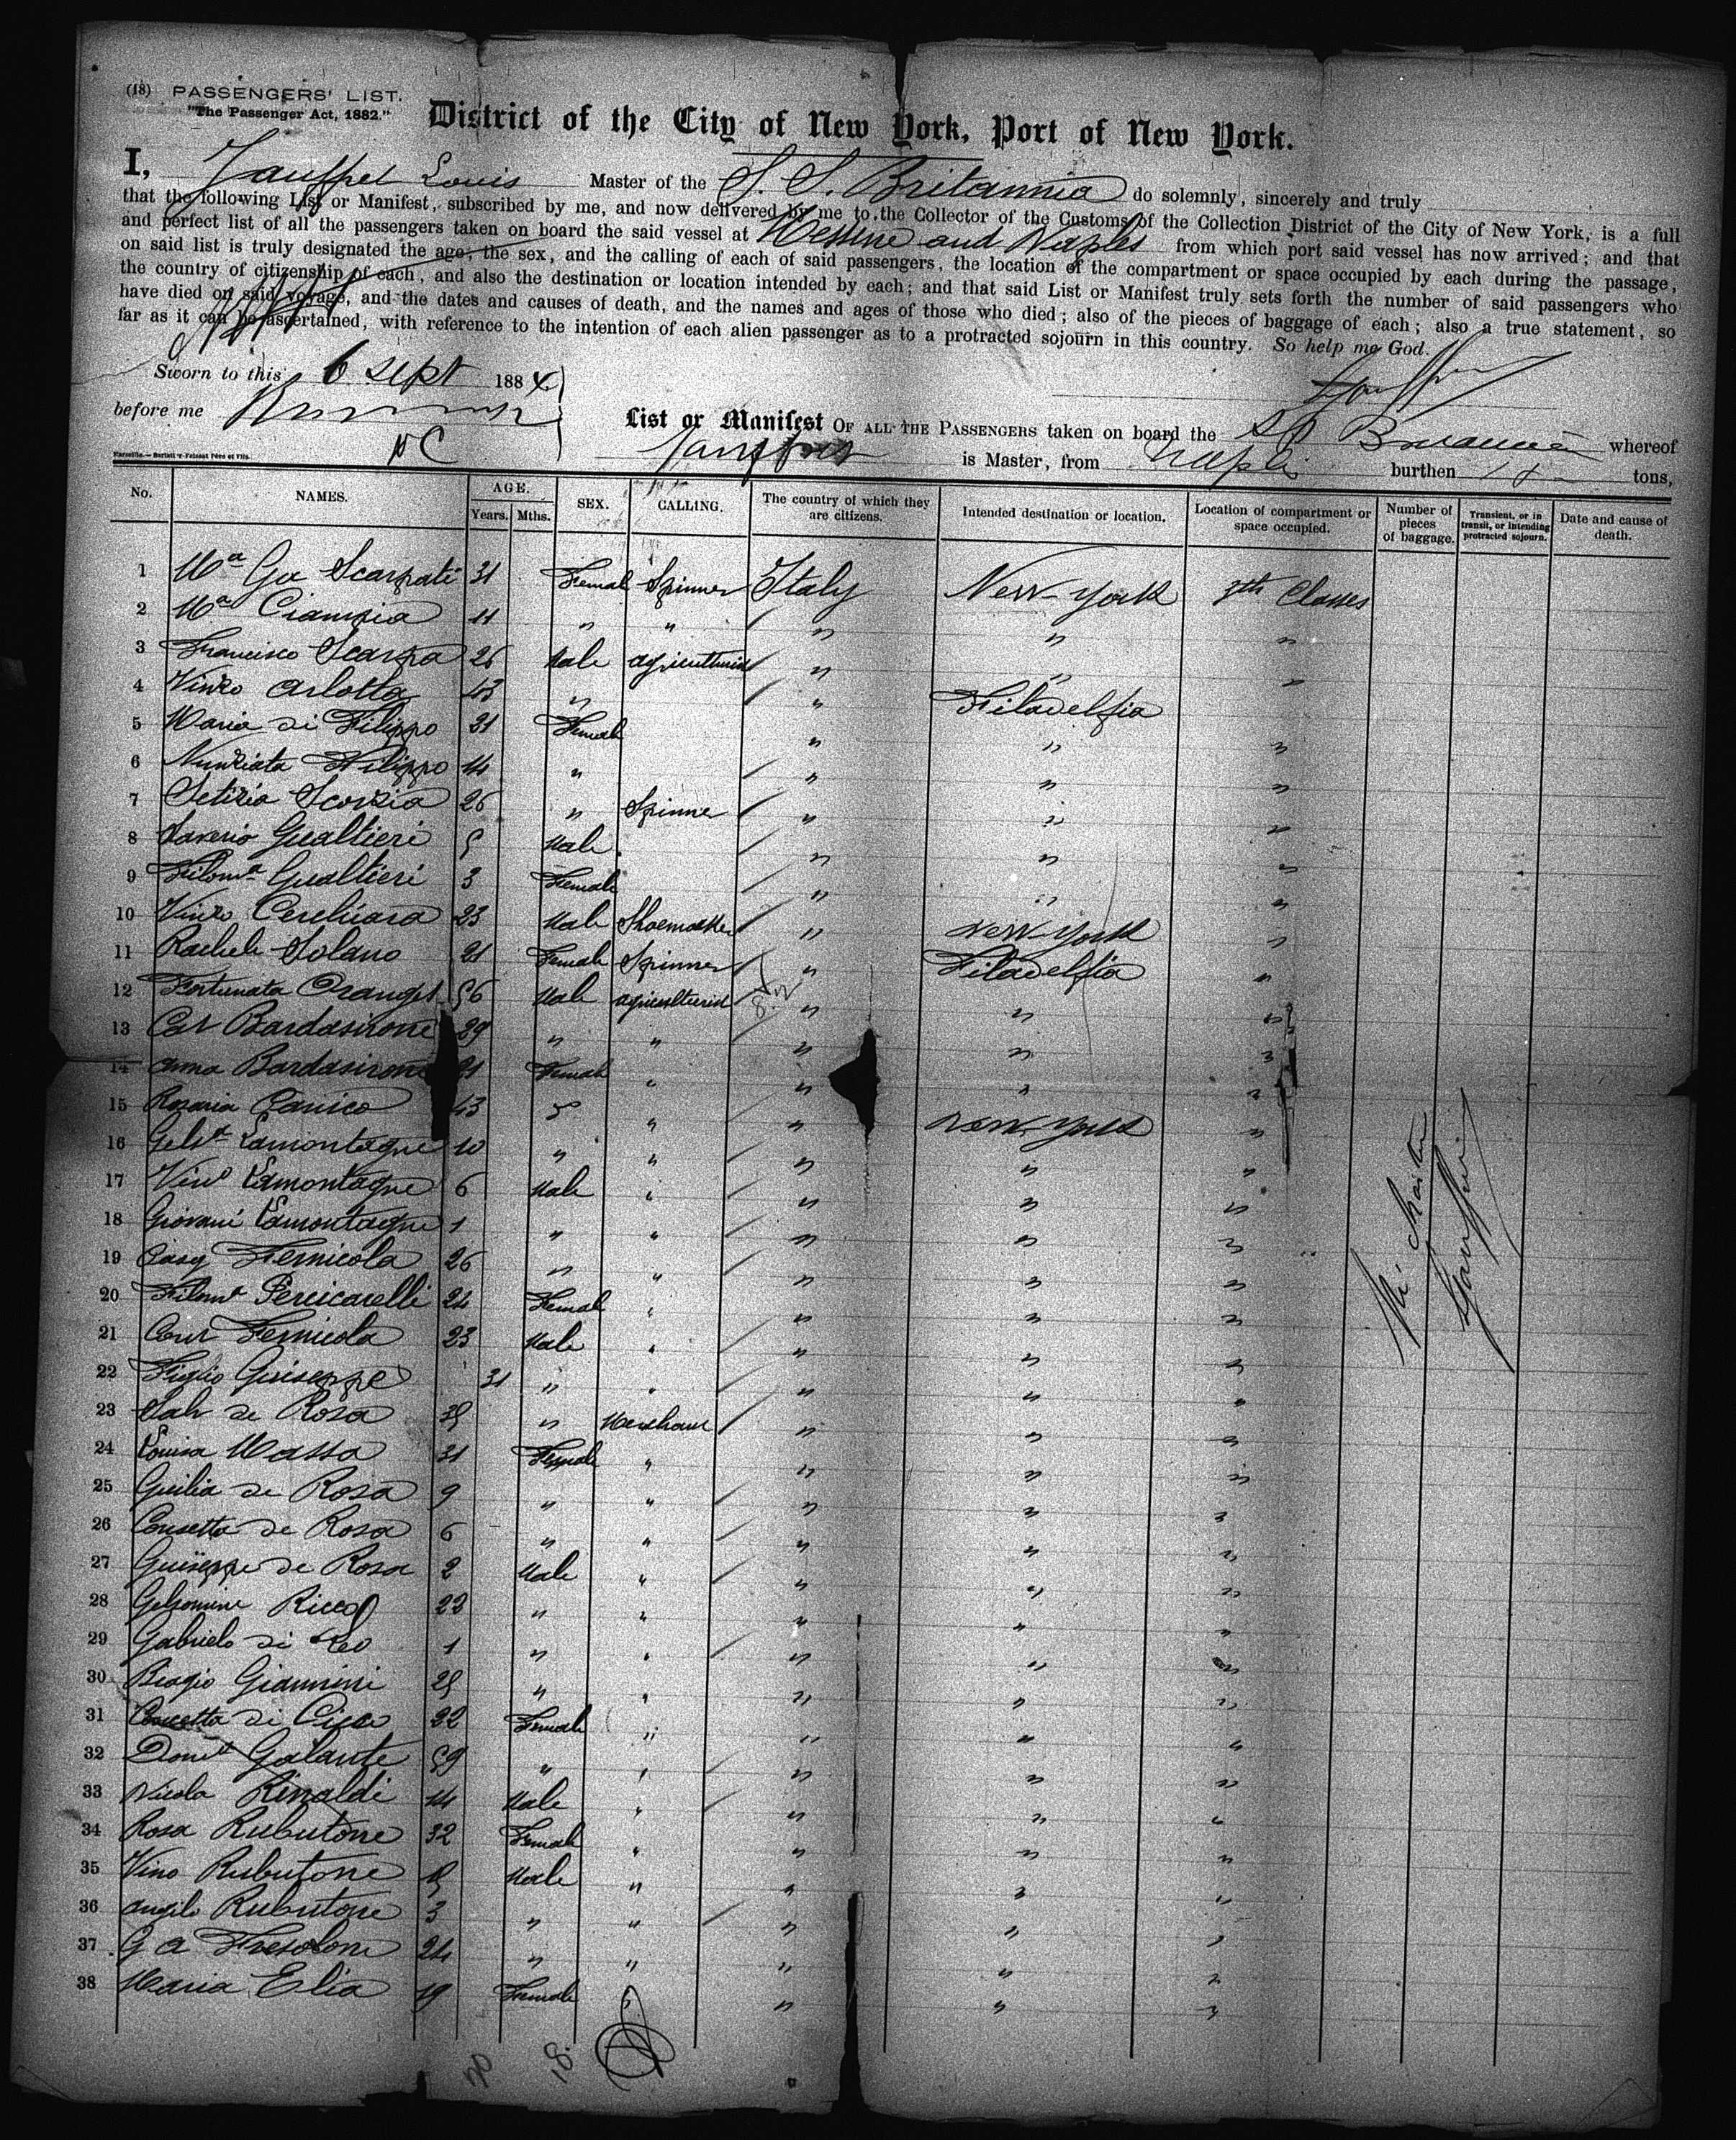 (18) PASSENGERS' LIST.
"The Passenger Act, 1882."
District of the City of New York, Port of New York.
I, Jauffret Louis Master of the S. S. Britannia do solemnly, sincerely and truly
that the following List or Manifest, subscribed by me, and now delivered by me to the Collector of the Customs of the Collection District of the City of New York, is a full
and perfect list of all the passengers taken on board the said vessel at Messine and Naples from which port said vessel has now arrived; and that
on said list is truly designated the age, the sex, and the calling of each of said passengers, the location of the compartment or space occupied by each during the passage,
the country of citizenship of each, and also the destination or location intended by each; and that said List or Manifest truly sets forth the number of said passengers who
have died on said voyage, and the dates and causes of death, and the names and ages of those who died; also of the pieces of baggage of each; also a true statement, so
far as it can be ascertained, with reference to the intention of each alien passenger as to a protracted sojourn in this country. So help me God.
Sworn to this 6 sept 1884
before me
List or Manifest OF ALL THE PASSENGERS taken on board the SS Britannia whereof
Jauffret is Master, from Naples burthen tons,
No. NAMES. AGE. Years. Mths. SEX. CALLING. The country of which they are citizens. Intended destination or location. Location of compartment or space occupied. Number of pieces of baggage. Transient, or in transit, or intending protracted sojourn. Date and cause of death.
1 Ma Gia Scarpati 31 Female Spinner Italy New-York 3th Classes
2 Ma Ciampia 11 " " " " "
3 Francisco Scarpa 26 Male agriculturist " " "
4 Vinzo Arlotta 43 " " Filadelfia
5 Maria di Filippo 31 Female " " "
6 Nunziata Filippo 14 " " " "
7 Letizia Scorzia 26 " Spinner " " "
8 Saverio Gualtieri 5 Male " " "
9 Filoma Gualtieri 3 Female " " "
10 Vinzo Cerchiara 23 Male Shoemaker " New-York "
11 Rachele Solano 21 Female Spinner " Filadelfia "
12 Fortunata 56 Male agriculturist " " "
13 Bardasirone 29 " " " " "
14 Anna Bardasirone 21 Female " " " "
15 Rosaria Canico 43 " " " New-York "
16 Gelsa Lamontagne 10 " " " " "
17 Vino Lamontagne 6 Male " " " "
18 Giovani Lamontagne 1 " " " " "
19 Pasq Fernicola 26 " " " " "
20 Filoma Percicarelli 24 Female " " " "
21 Fernicola 23 Male " " " "
22 Figlio Giuseppe 31 " " " " "
23 Salv de Rosa 35 " Merchant " " "
24 Louisa Massa 31 Female " " " "
25 Guilia de Rosa 9 " " " " "
26 Consetta de Rosa 6 " " " " "
27 Guiseppe de Rosa 2 Male " " " "
28 Gelsomine Ricco 22 " " " " "
29 Gabriele di Leo 1 " " " " "
30 Biagio Giannini 25 " " " " "
31 Concetta di Cicco 22 Female " " " "
32 Doma Galante 59 " " " " "
33 Nicola Rinaldi 14 Male " " " "
34 Rosa Rubutone 32 Female " " " "
35 Vino Rubutone Male " " " "
36 Angelo Rubutone 3 " " " " "
37 G a Fresolone 24 " " " " "
38 Maria Elia 19 Female " " " "